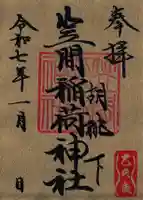 奉拝
胡桃下
笠間稲荷神社
令和七年一月 日